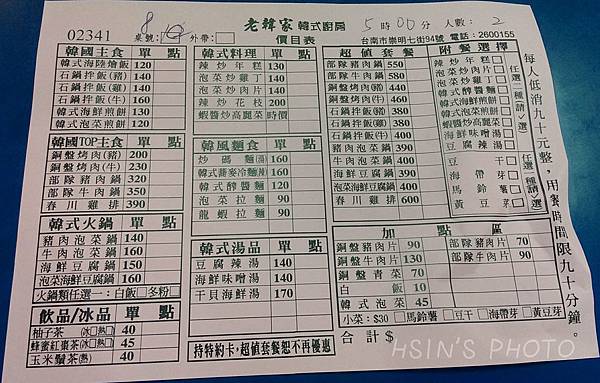 02341 桌號: 外帶:□ 老韓家 韓式廚房 5時00分 人數: 2
價目表 台南市崇明七街94號 電話:2600155
韓國主食 單 點
韓式海陸燴飯 120
石鍋拌飯(豬) 140
石鍋拌飯(牛) 160
韓式海鮮煎餅 130
韓式泡菜煎餅 120
韓國TOP主食 單 點
銅盤烤肉(豬) 200
銅盤烤肉(牛) 230
部隊豬肉鍋 320
部隊牛肉鍋 350
春川雞排 390
韓式火鍋 單 點
豬肉泡菜鍋 140
牛肉泡菜鍋 160
海鮮豆腐鍋 150
泡菜海鮮豆腐鍋 160
火鍋類任選一:白飯□冬粉□
飲品/冰品 單 點
柚子茶 (冰□熱□) 40
蜂蜜紅棗茶(冰□熱□) 45
玉米鬚茶(熱) 40
韓式料理 單 點
辣炒年糕 130
泡菜炒雞丁 140
泡菜炒肉片 140
辣炒花枝 200
蝦醬炒高麗菜 時價
韓風麵食 單 點
炒碼麵(湯) 160
韓式蕎麥冷麵(辣) 160
韓式醡醬麵 120
泡菜拉麵 90
龍蝦拉麵 90
韓式湯品 單 點
豆腐辣湯 140
海鮮味噌湯 140
干貝海鮮湯 170
持特約卡,超值套餐恕不再優惠
超值套餐
部隊豬肉鍋 550
部隊牛肉鍋 580
銅盤烤肉(豬) 440
銅盤烤肉(牛) 460
石鍋拌飯(豬) 380
石鍋拌飯(牛) 400
韓式海陸燴飯 380
豬肉泡菜鍋 390
牛肉泡菜鍋 400
海鮮豆腐鍋 390
泡菜海鮮豆腐鍋 400
春川雞排 600
附餐選擇
辣炒年糕□
泡菜炒肉片□
泡菜炒雞丁□
韓式醡醬麵□
韓式海鮮煎餅□
韓式泡菜煎餅□
蝦醬炒高麗菜□
海鮮味噌湯□
豆腐辣湯□
任選一種請✓選
豆干□
海帶芽□
馬鈴薯□
黃豆芽□
任選一種請✓選
加點區
銅盤豬肉片 90 部隊豬肉片 70
銅盤牛肉片 130 部隊牛肉片 90
銅盤青菜 70
白飯 10
韓式泡菜 45
小菜:$30 □馬鈴薯 □豆干 □海帶芽 □黃豆芽
合計$
每人低消九十元整,用餐時間限九十分鐘。
HSIN'S PHOTO